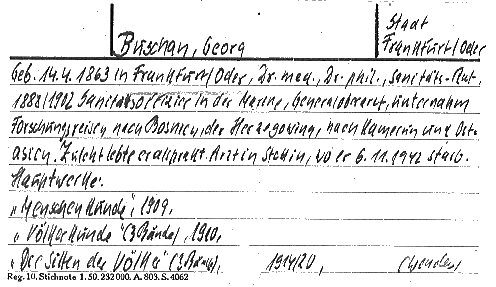 Buschan, Georg
Stadt
Frankfurt/Oder
Geb. 14.4. 1863 in Frankfurt/Oder, Dr. med., Dr. phil., Sanitäts-Rat,
1888/1902 Sanitätsoffizier in der Marine, Generaloberarzt, unternahm
Forschungsreisen nach Bosnien, der Herzegowina, nach Kamerun und Ost-
asien. Zuletzt lebte er als prakt. Arzt in Stettin, wo er 6.11.1942 starb.
Hauptwerke:
„Menschenkunde", 1909,
„Völkerkunde" (3 Bände), 1910,
„Die Sitten der Völker" (3 Bände), 1914/20, (wenden)
Reg. 10. Stichnote 1. 50. 232000. A. 803. S. 4062